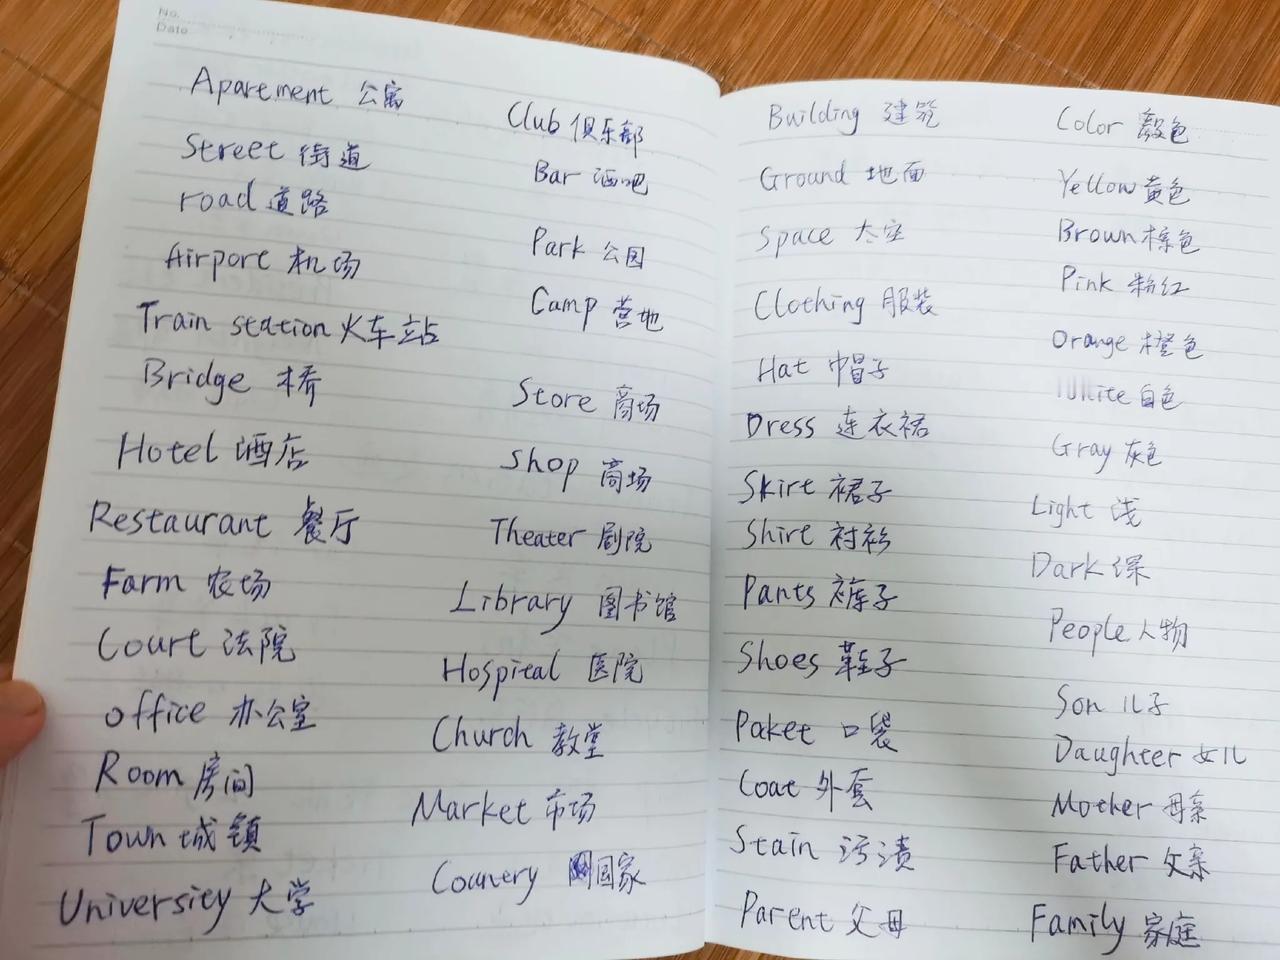 No.
Date
Aparement 公寓
Street 街道
road 道路
Airport 机场
Train station 火车站
Bridge 桥
Hotel 酒店
Restaurant 餐厅
Farm 农场
Court 法院
office 办公室
Room 房间
Town 城镇
University 大学
Club 俱乐部
Bar 酒吧
Park 公园
Camp 营地
Store 商场
Shop 商场
Theater 剧院
Library 图书馆
Hospital 医院
Church 教堂
Market 市场
Country 国家
Building 建筑
Ground 地面
Space 太空
Clothing 服装
Hat 帽子
Dress 连衣裙
Skirt 裙子
Shirt 衬衫
Pants 裤子
Shoes 鞋子
Paket 口袋
Coat 外套
Stain 污渍
Parent 父母
Color 颜色
Yellow 黄色
Brown 棕色
Pink 粉红
Orange 橙色
White 白色
Gray 灰色
Light 浅
Dark 深
People 人物
Son 儿子
Daughter 女儿
Mother 母亲
Father 父亲
Family 家庭